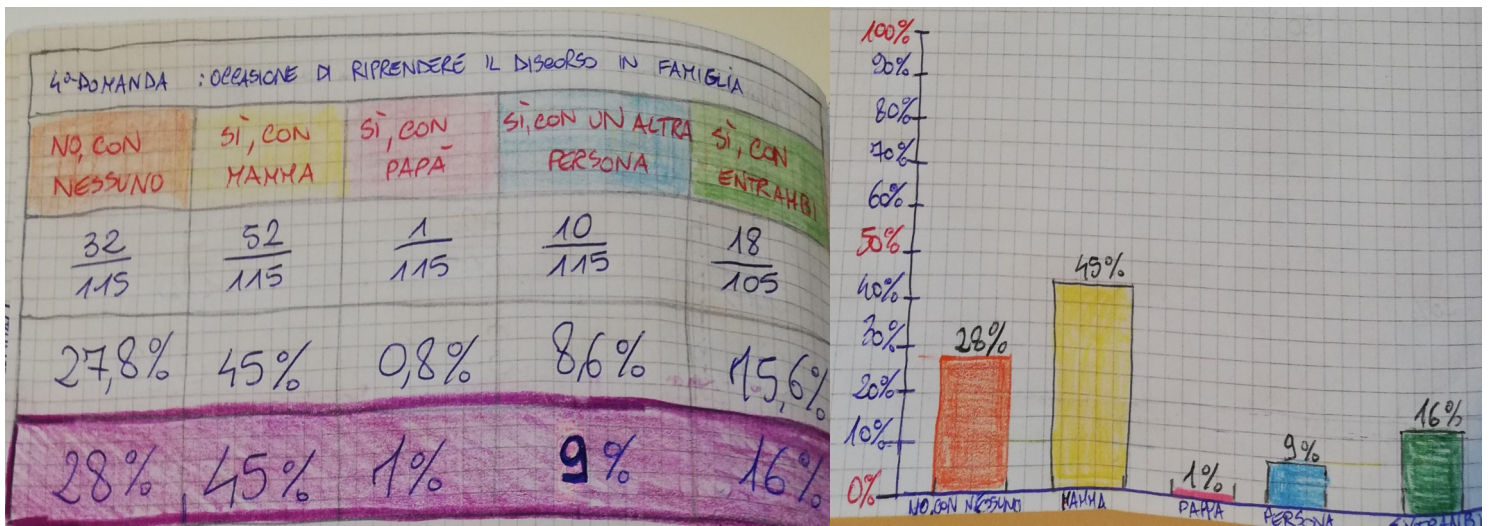 4ª DOMANDA : OCCASIONE DI RIPRENDERE IL DISCORSO IN FAMIGLIA
NO, CON
NESSUNO
SÌ, CON
MAMMA
SÌ, CON
PAPÀ
SÌ, CON UN ALTRA
PERSONA
SÌ, CON
ENTRAMBI
32
115
52
115
1
115
10
115
18
105
27,8% 45% 0,8% 8,6% 15,6%
28% 45% 1% 9% 16%
100%
90%
80%
70%
60%
50%
40%
30%
20%
10%
0%
28%
45%
1%
9%
16%
NO, CON NESSUNO
MAMMA
PAPPA
PERSONA